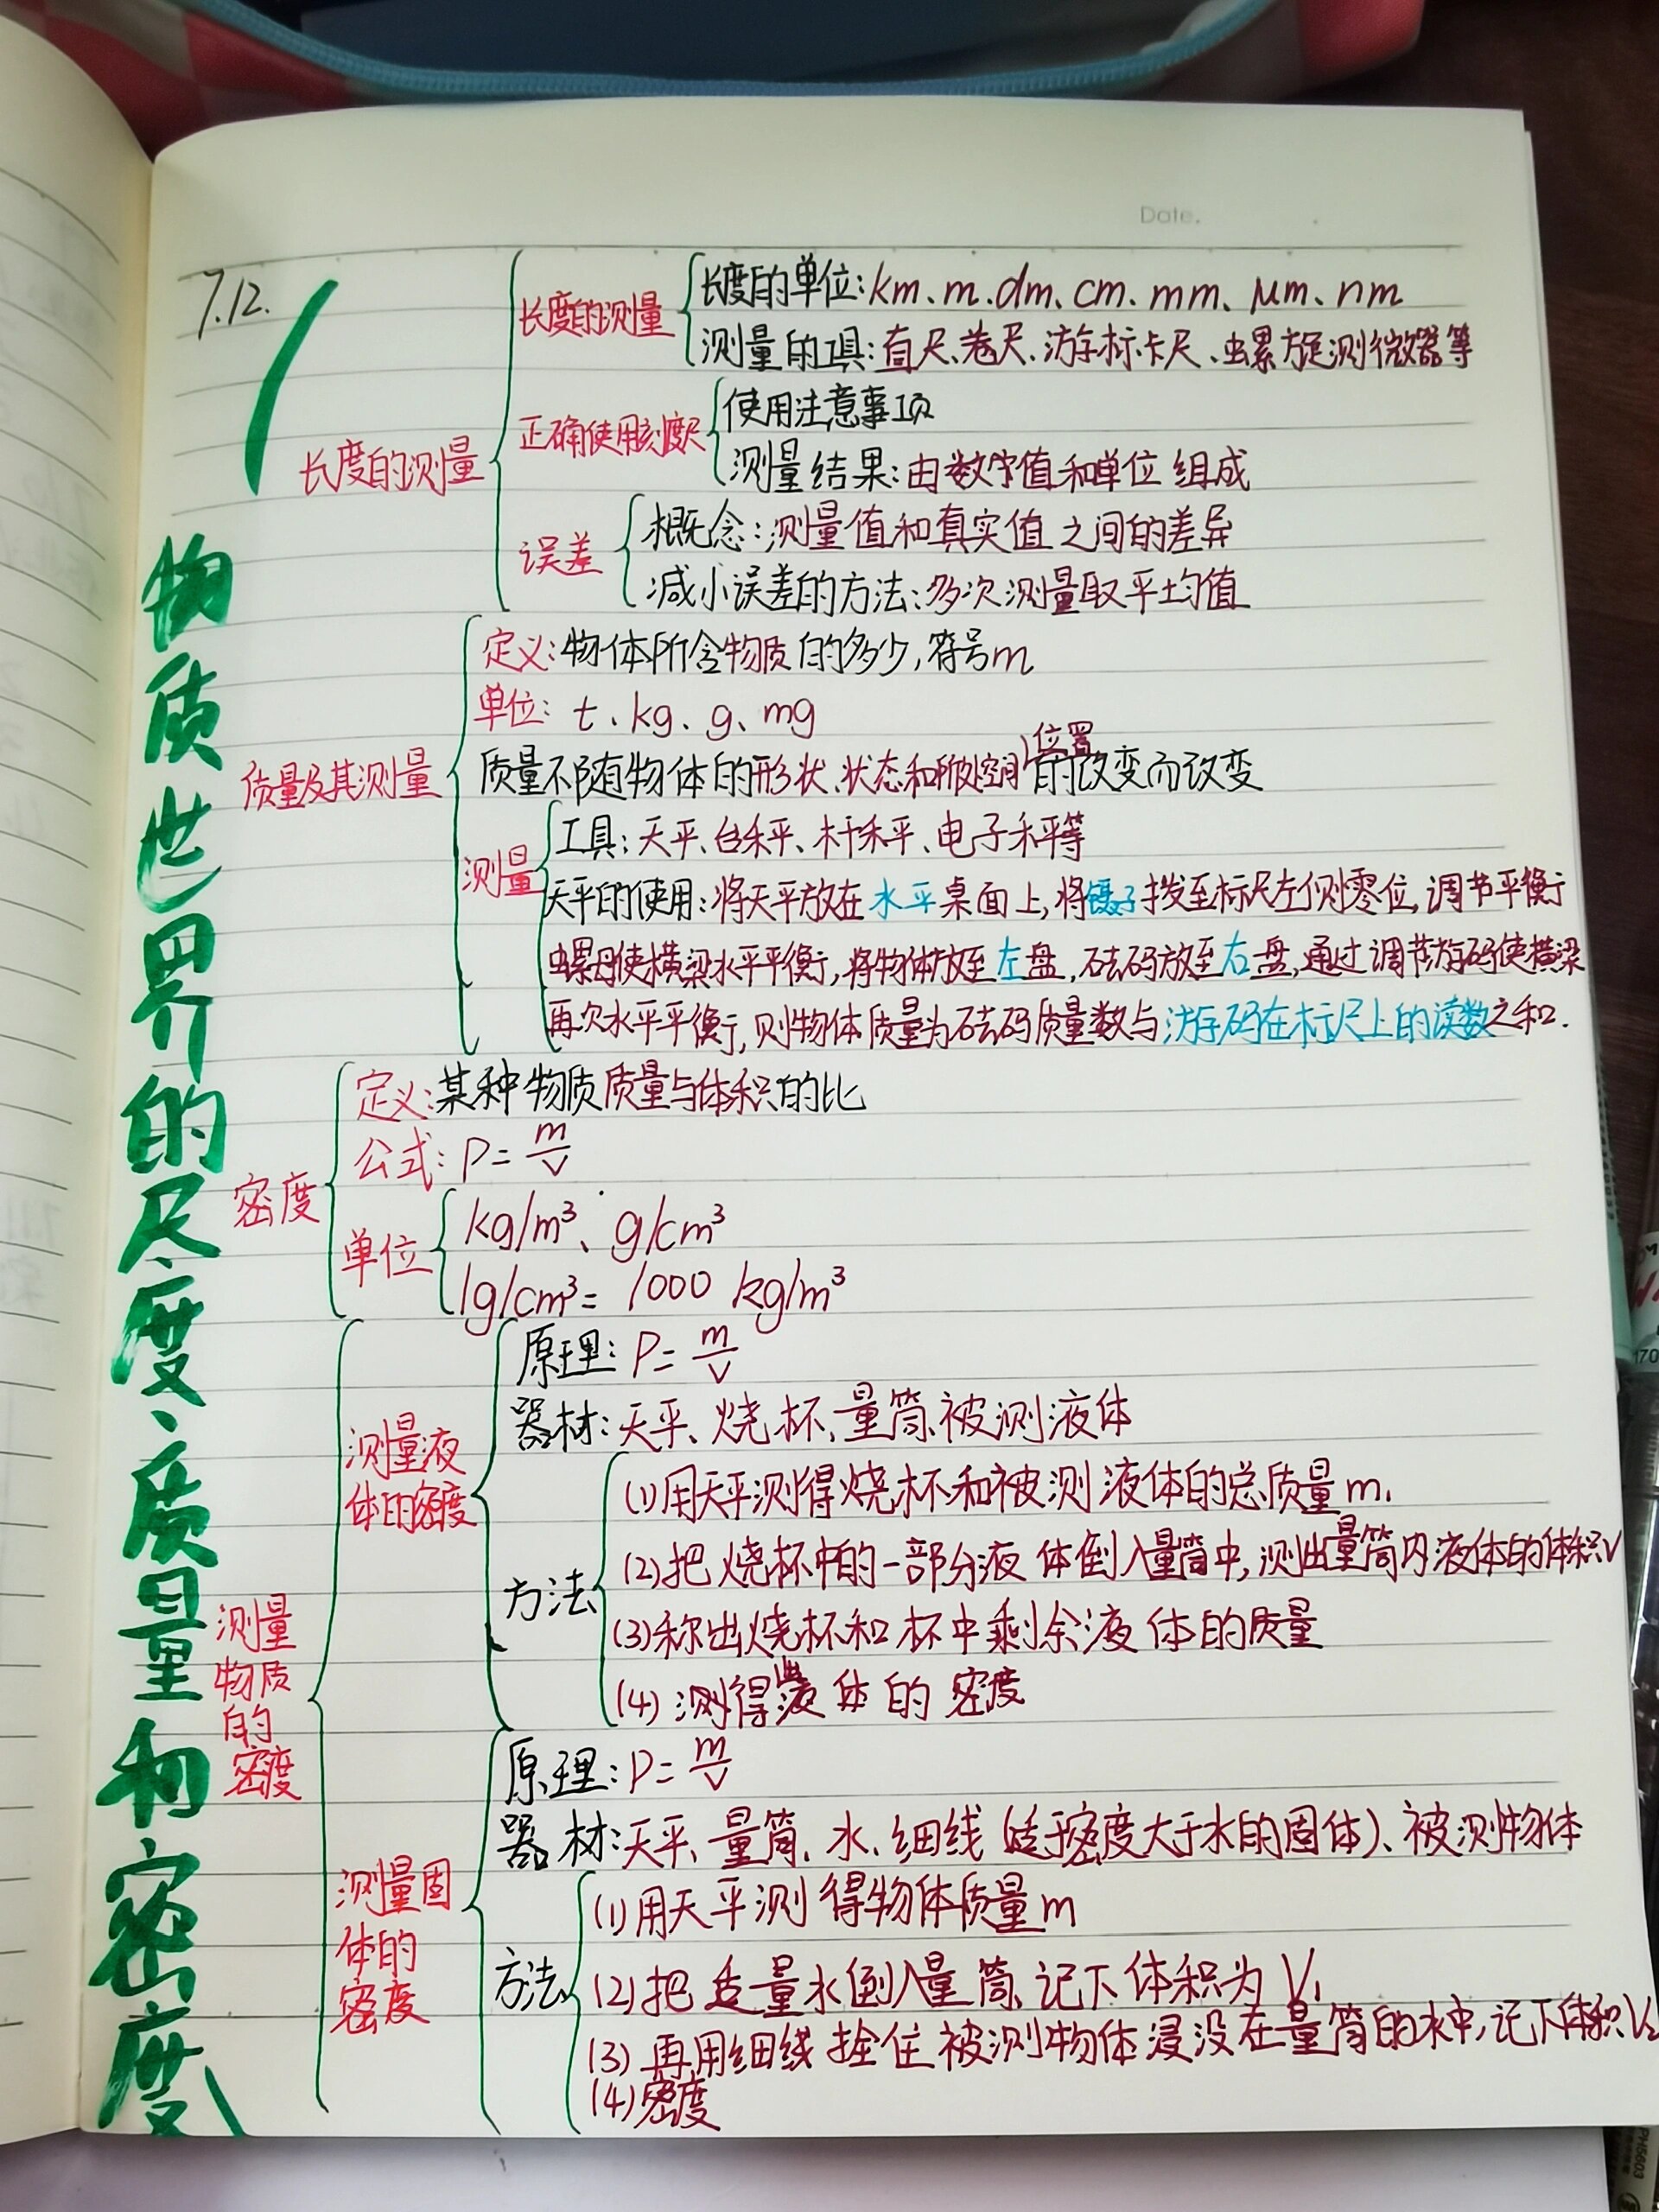 Date.
7.12.
物质世界的尺度、质量和密度
长度的测量
长度的测量
长度的单位:km、m、dm、cm、mm、μm、nm
测量的工具:直尺、卷尺、游标卡尺、螺旋测微器等
正确使用刻度尺
使用注意事项
测量结果:由数字值和单位组成
误差
概念:测量值和真实值之间的差异
减小误差的方法:多次测量取平均值
质量及其测量
定义:物体所含物质的多少,符号m
单位: t、kg、g、mg
质量不随物体的形状、状态和所处空间位置的改变而改变
测量
工具:天平、台秤、杆秤、电子秤等
天平的使用:将天平放在水平桌面上,将镊子拨至标尺左侧零位,调节平衡
螺母使横梁水平平衡,将物体放至左盘,砝码放至右盘,通过调节游码使横梁
再次水平平衡,则物体质量为砝码质量数与游码在标尺上的读数之和.
密度
定义:某种物质质量与体积的比
公式: ρ= m/V
单位
kg/m³、g/cm³
1g/cm³= 1000 kg/m³
测量
物质
的
密度
测量液
体的密度
原理: ρ= m/V
器材:天平、烧杯、量筒、被测液体
方法
(1)用天平测得烧杯和被测液体的总质量m₁
(2)把烧杯中的一部分液体倒入量筒中,测出量筒内液体的体积V
(3)称出烧杯和杯中剩余液体的质量
(4)测得液体的密度
测量固
体的
密度
原理: ρ= m/V
器材:天平、量筒、水、细线(适于密度大于水的固体)、被测物体
方法
(1)用天平测得物体质量m
(2)把适量水倒入量筒,记下体积为V₁
(3)再用细线拴住被测物体浸没在量筒的水中,记下体积V₂
(4)密度